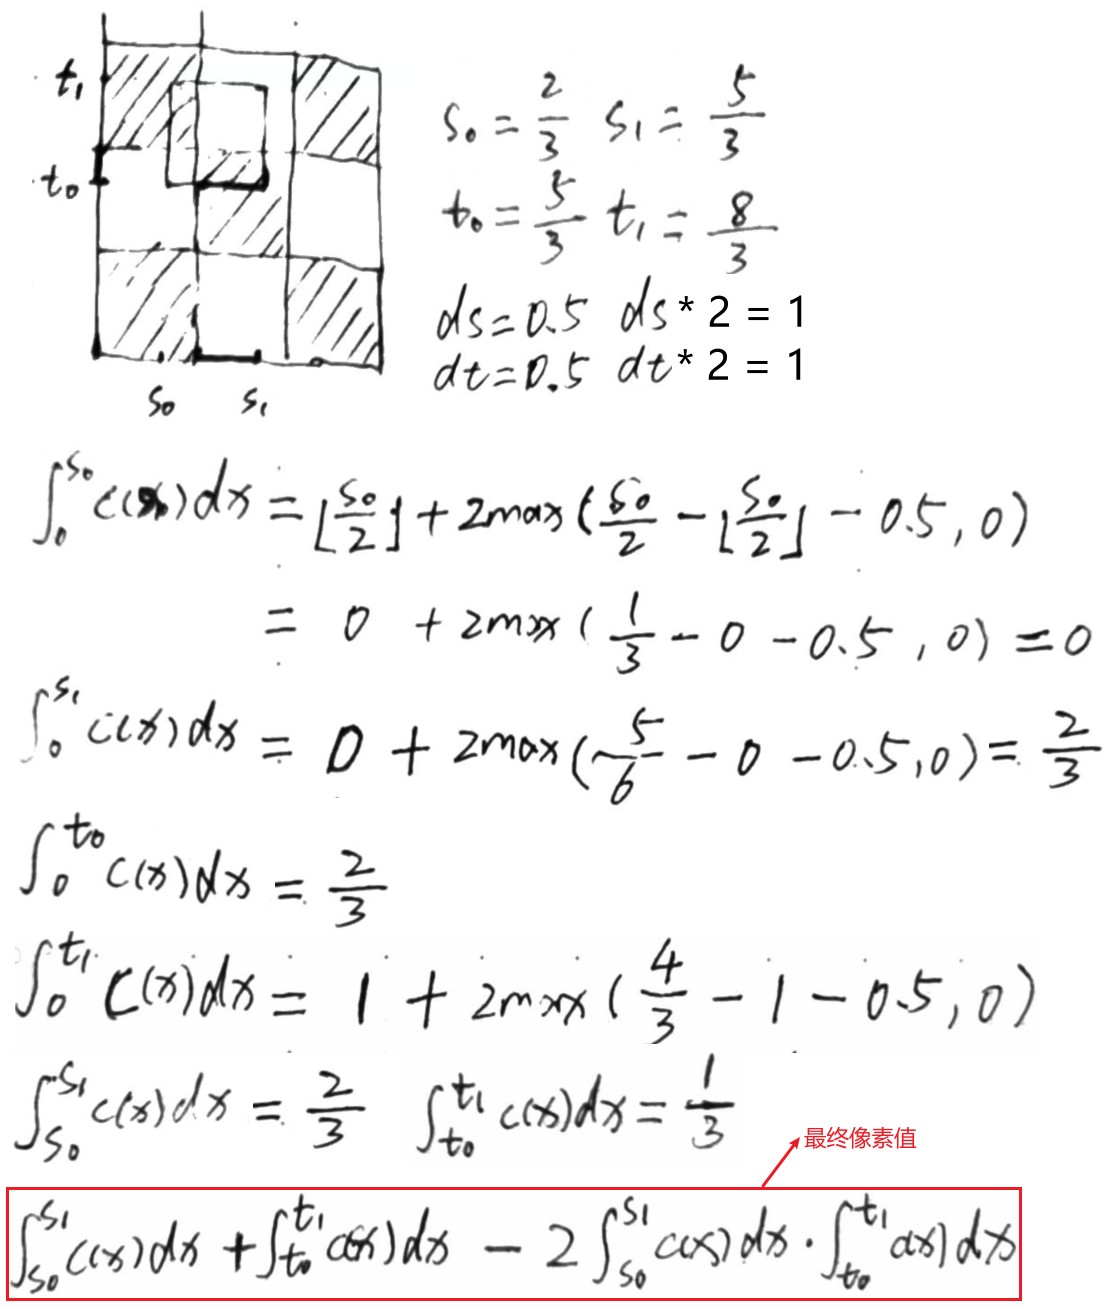 t₁
t₀
s₀ s₁
s₀ = 2/3 s₁ = 5/3
t₀ = 5/3 t₁ = 8/3
ds = 0.5 ds * 2 = 1
dt = 0.5 dt * 2 = 1
∫₀^s₀ c(x)dx = ⌊s₀/2⌋ + 2max(s₀/2 - ⌊s₀/2⌋ - 0.5, 0)
= 0 + 2max(1/3 - 0 - 0.5, 0) = 0
∫₀^s₁ c(x)dx = 0 + 2max(5/6 - 0 - 0.5, 0) = 2/3
∫₀^t₀ c(x)dx = 2/3
∫₀^t₁ c(x)dx = 1 + 2max(4/3 - 1 - 0.5, 0)
∫s₀^s₁ c(x)dx = 2/3 ∫t₀^t₁ c(x)dx = 1/3
最终像素值
∫s₀^s₁ c(x)dx + ∫t₀^t₁ c(x)dx - 2∫s₀^s₁ c(x)dx · ∫t₀^t₁ c(x)dx